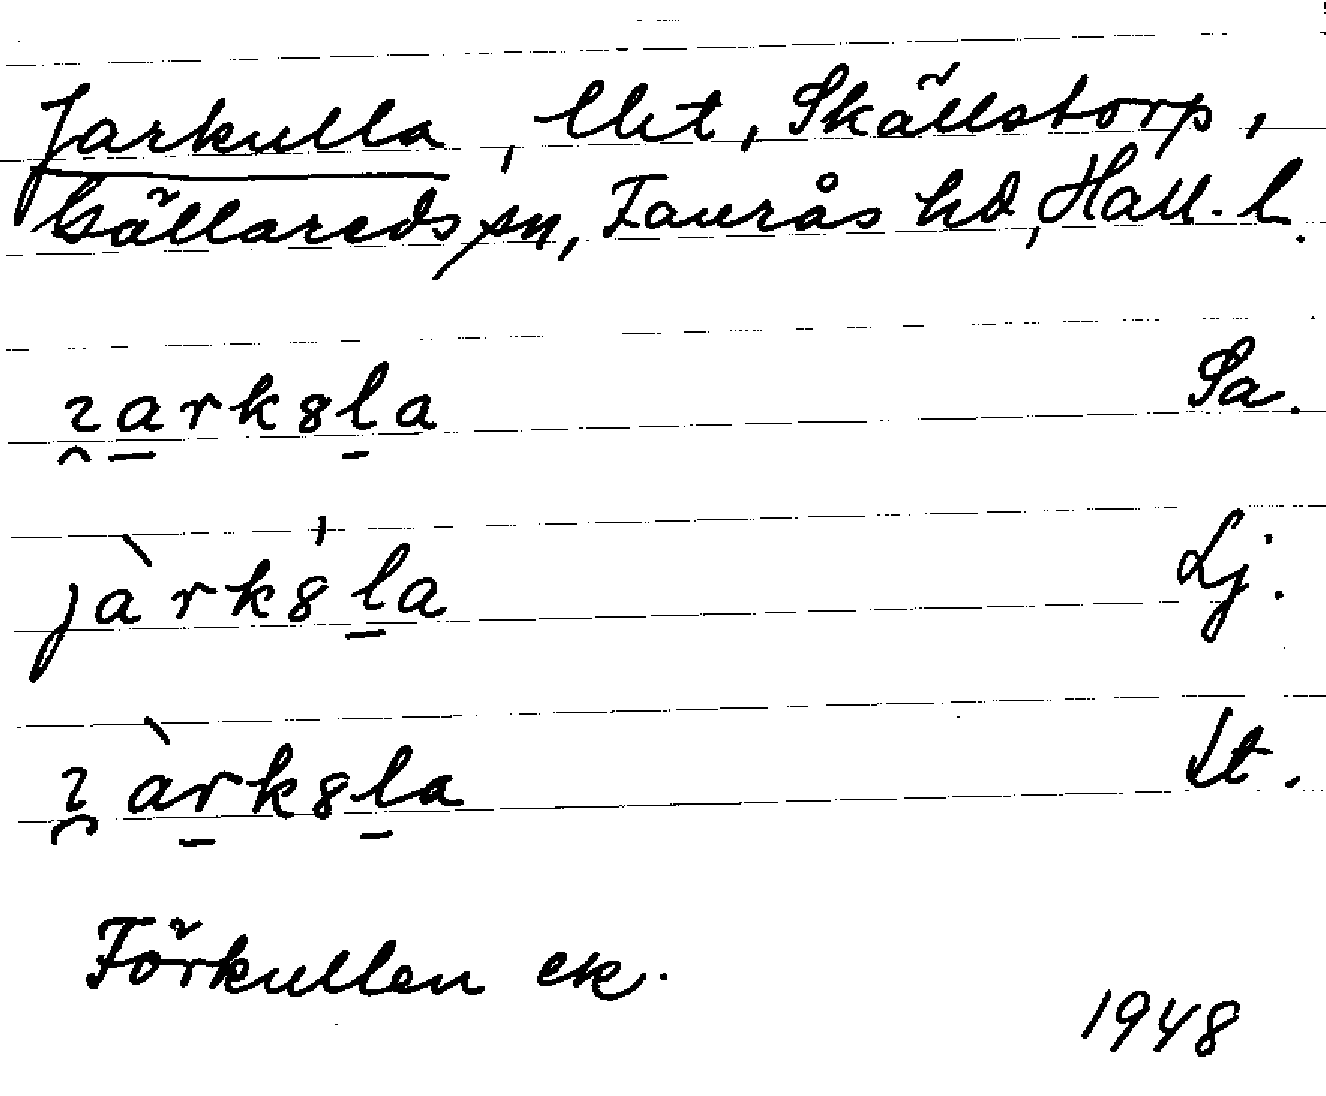 Jarkulla, lht, Skällstorp,
Gällareds sn, Faurås hd, Hall. l.
ɿarkȣla Sa.
jàrkȣla Lj.
ɿàrkȣla It.
Förkullen ek.
1948